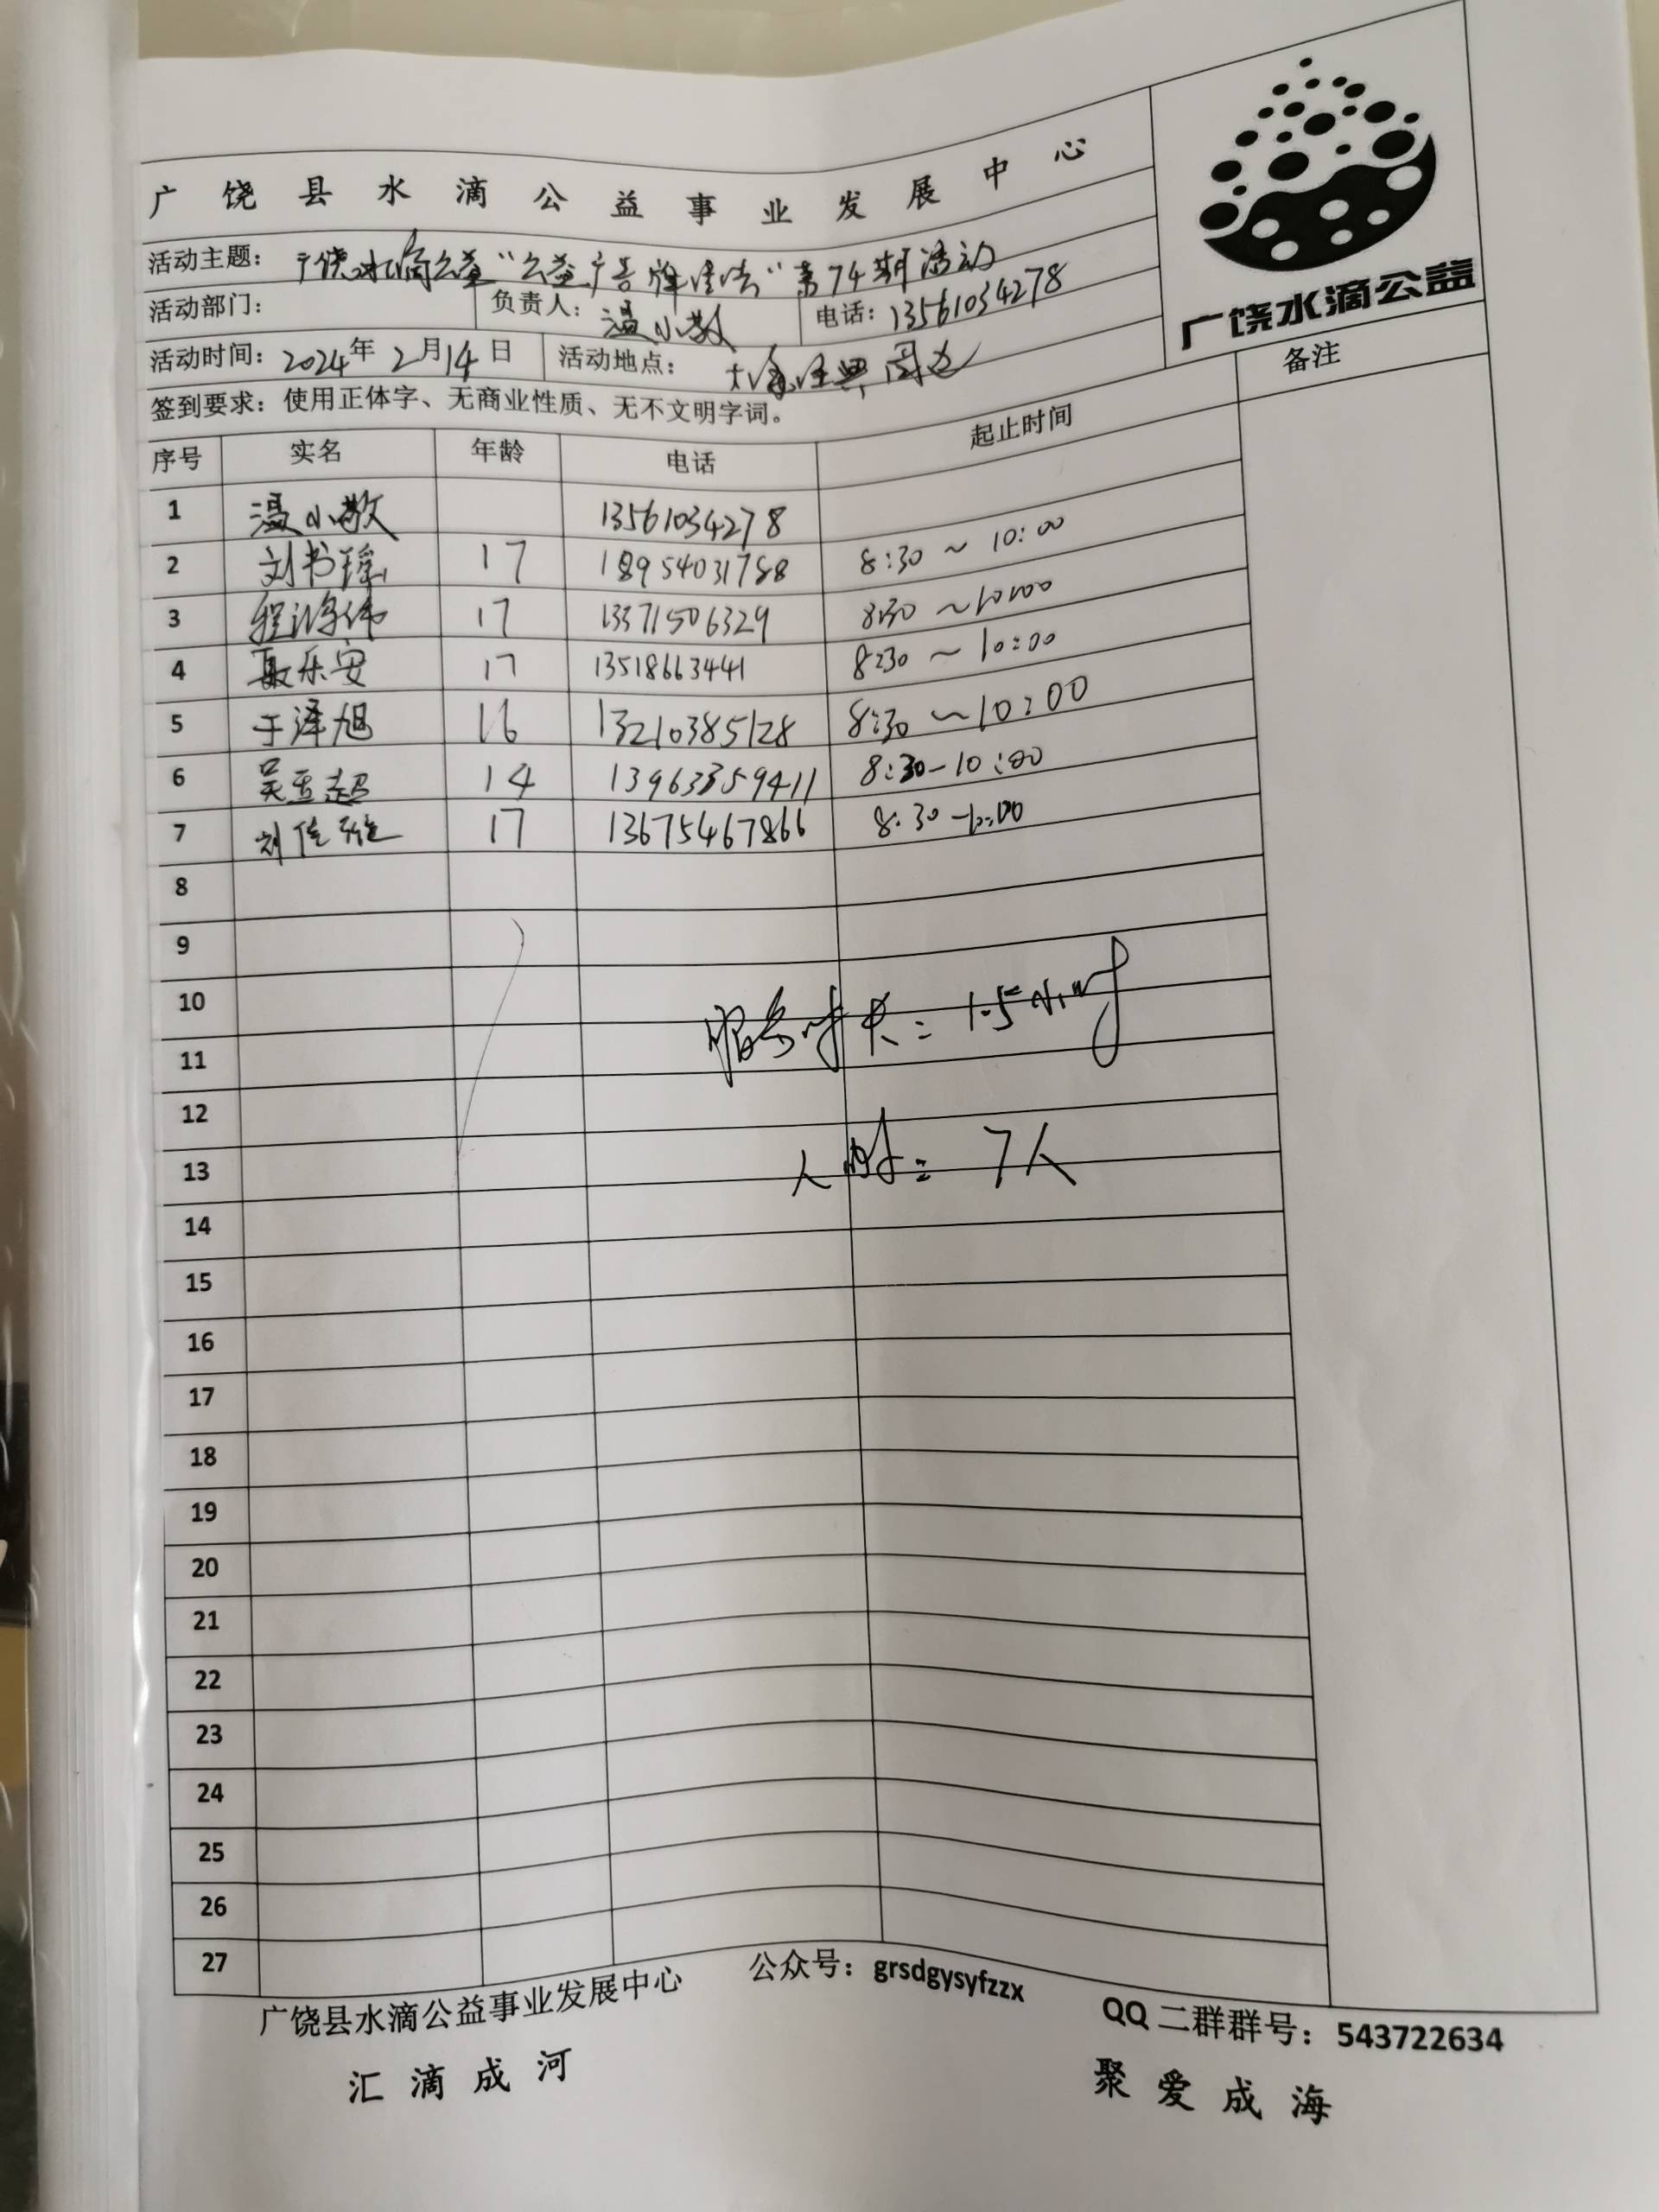 广饶县水滴公益事业发展中心
广饶水滴公益
活动主题：广饶水滴公益“公益广告牌清洁”第74期活动
活动部门： 负责人：温小敬 电话：13561034278
活动时间：2024年2月14日 活动地点：周边
签到要求：使用正体字、无商业性质、无不文明字词。
序号 实名 年龄 电话 起止时间 备注
1 温小敬 13561034278
2 刘书瑶 17 18954031788 8:30～10:00
3 17 13371506329 8:30～10:00
4 聂乐安 17 13518663441 8:30～10:00
5 于泽旭 16 13210385128 8:30～10:00
6 吴孟超 14 13963359411 8:30-10:00
7 刘佳璇 17 13675467866 8:30-10:00
8
9
10
服务时长：1.5小时
11
12
13
人时：7人
14
15
16
17
18
19
20
21
22
23
24
25
26
27
广饶县水滴公益事业发展中心 公众号：grsdgysyfzzx QQ二群群号：543722634
汇滴成河 聚爱成海